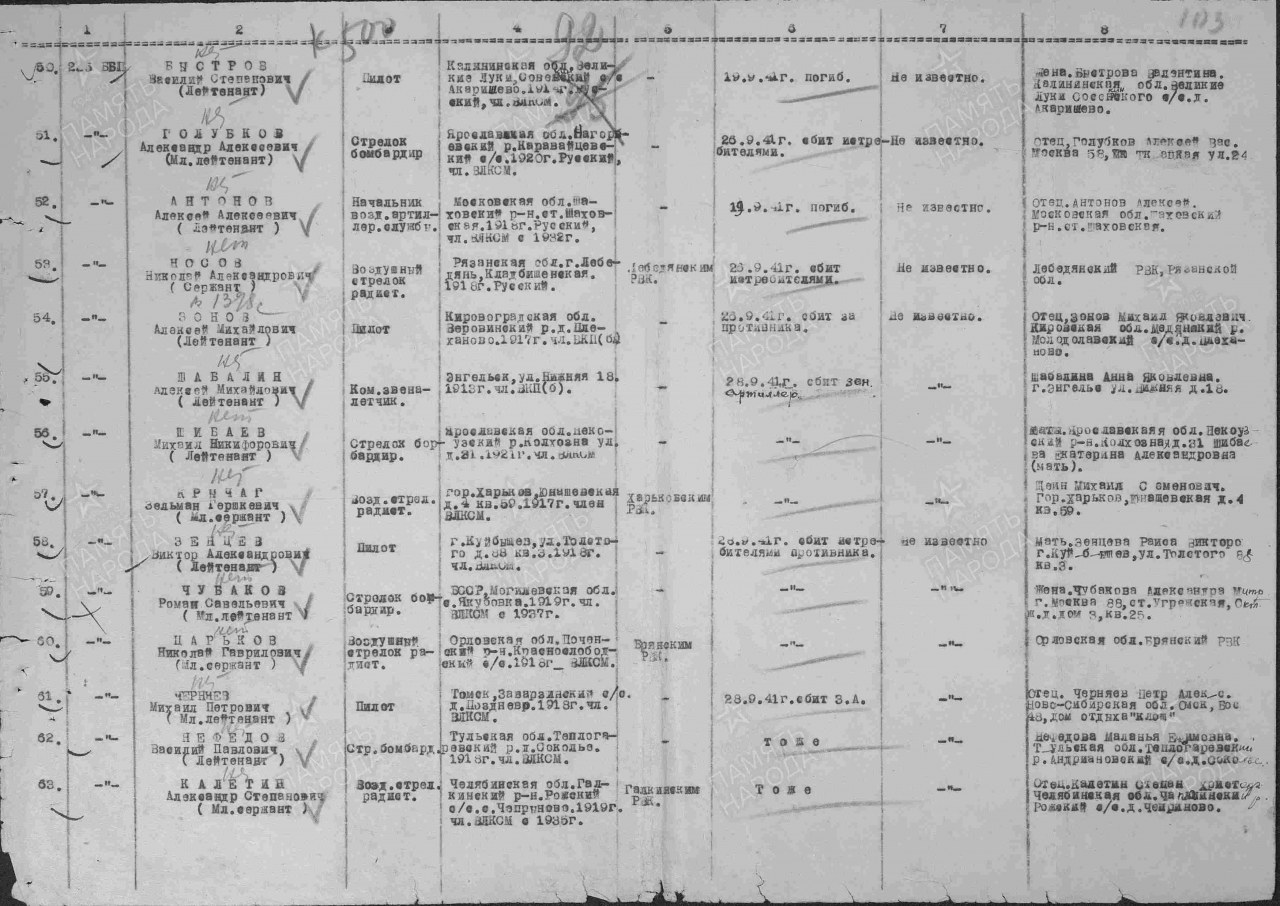 к 500
92
103
1 2 3 4 5 6 7 8
50. ББП БЫСТРОВ
Василий Степанович
(Лейтенант)
Пилот
Калининская обл, Вели-
кие Луки, с/с
Акаришево.1914г.Рус-
ский,чл.ВЛКСМ.
-
19.9.41г. погиб.
Не известно.
Жена.Быстрова Валентина.
Калининская обл.Великие
Луки с/с.д.
Акаришево.
51. -"- ГОЛУБКОВ
Александр Алексеевич
(Мл.лейтенант)
Стрелок
бомбардир
Ярославская обл.Нагорь-
евский р.Каравайцевс-
кий с/с.1920г.Русский,
чл.ВЛКСМ.
-
26.9.41г. сбит истре-
бителями.
Не известно.
Отец,Голубков Алексей Вас.
Москва 58, ул.24
52. -"- АНТОНОВ
Алексей Алексеевич
( Лейтенант )
Начальник
возд.артил-
лер.службы.
Московская обл.Ша-
ховский р-н.ст.Шахов-
ская.1918г.Русский,
чл.ВЛКСМ с 1932г.
-
19.9.41г. погиб.
Не известно.
Отец.Антонов Алексей.
Московская обл.Шаховский
р-н.ст.Шаховская.
53. -"- НОСОВ
Николай Александрович
( Сержант )
Воздушный
стрелок
радист.
Рязанская обл.г.Лебе-
дянь,Кладбищенская.
1918г.Русский.
Лебедянским
РВК.
26.9.41г. сбит
истребителями.
Не известно.
Лебедянский РВК,Рязанской
обл.
54. -"- ЗОНОВ
Алексей Михайлович
(Лейтенант )
Пилот
Кировоградская обл.
Веровинский р.д.Пле-
ханово.1917г.чл.ВКП(б)
-
26.9.41г. сбит за
противника.
Не известно.
Отец,Зонов Михаил Яковлевич.
Кировская обл.Медянский р.
Молодолавский с/с.д.Плеха-
ново.
55. -"- ШАБАЛИН
Алексей Михайлович
( Лейтенант )
Ком.звена-
летчик.
Энгельск,ул.Нижняя 18.
1913г.чл.ВКП(б).
-
28.9.41г. сбит зен.
артиллер.
-"-
Шабалина Анна Яковлевна.
г.Энгельс ул.Нижняя д.18.
56. -"- ШИБАЕВ
Михаил Никифорович
( Лейтенант )
Стрелок бом-
бардир.
Ярославская обл.Неко-
узский р.Колхозна ул.
д.31.1921г.чл.ВЛКСМ
-
-"-
-"-
Мать.Ярославская обл.Некоуз-
ский р-н.Колхозная д.31 Шибае-
ва Екатерина Александровна
(мать).
57. -"- КРИЧАГ
Зельман Гершкевич
( Мл.сержант )
Возд.стрел.
радист.
гор.Харьков,Юнашевская
д.4 кв.59.1917г.член
ВЛКСМ.
Харьковским
РВК.
-"-
-"-
Михаил С еменович.
Гор.Харьков,Юнашевская д.4
кв.59.
58. -"- ЗЕНЦЕВ
Виктор Александрович
( Лейтенант )
Пилот
г.Куйбышев,ул.Толсто-
го д.88 кв.3.1918г.
чл.ВЛКСМ.
-
28.9.41г. сбит истре-
бителями противника.
Не известно
Мать.Зенцева Раиса Викторо
г.Куйбышев,ул.Толстого 88
кв.3.
59. -"- ЧУБАКОВ
Роман Савельевич
( Мл.лейтенант )
Стрелок бом-
бардир.
БССР,Могилевская обл.
с.Якубовка.1919г.чл.
ВЛКСМ с 1937г.
-
-"-
-"-
Жена.Чубакова Александра
г.Москва 88,ст.Угрешская,Окт
ж.д.дом 3,кв.25.
60. -"- ЦАРЬКОВ
Николай Гаврилович
(Мл.сержант )
Воздушный
стрелок ра-
дист.
Орловская обл.Почеп-
ский р-н.Краснослобод-
ский с/с.1918г_ ВЛКСМ.
Брянским
РВК.
-"-
-"-
Орловская обл.Брянский РВК
61. -"- ЧЕРНЯЕВ
Михаил Петрович
( Мл.лейтенант )
Пилот
Томск,Заварзинский с/с.
д.Позднево.1918г.чл.
ВЛКСМ.
-
28.9.41г.сбит З.А.
-"-
Отец. Черняев Петр Алек-с.
Ново-Сибирская обл.Омск,
48,дом отдыха
62. -"- НЕФЕДОВ
Василий Павлович.
( Лейтенант )
Стр.бомбард.
Тульская обл.Теплога-
ревский р.д.Соколье.
1918г.чл.ВЛКСМ.
-
Т о ж е
-"-
Нефедова Маланья Ефимовна.
Т ульская обл.Теплогаревский
р.Андриановский с/с.д.
63. -"- КАЛЕТИН
Александр Степанович
( Мл.сержант )
Возд.стрел.
радист.
Челябинская обл.Гал-
кинский р-н.Рожский
с/с.с.Чепруново.1919г.
чл.ВЛКСМ с 1935г.
Галкинским
РВК.
Т о ж е
-"-
Отец.Калетин Степан
Челябинская обл.
Рожский с/с.д.Чеприново.
ПАМЯТЬ НАРОДА